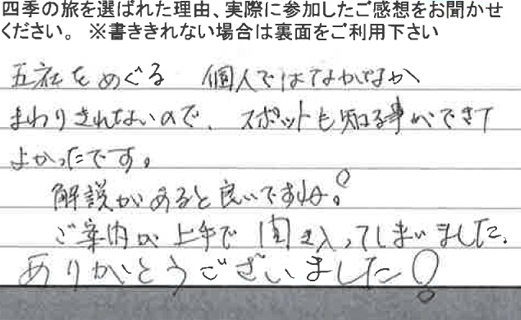 四季の旅を選ばれた理由、実際に参加したご感想をお聞かせ
ください。 ※書ききれない場合は裏面をご利用下さい
五社をめぐる 個人ではなかなか
まわりきれないので、スポットも知る事ができて
よかったです。
解説があると良いですね。
ご案内が上手で聞き入ってしまいました。
ありがとうございました!